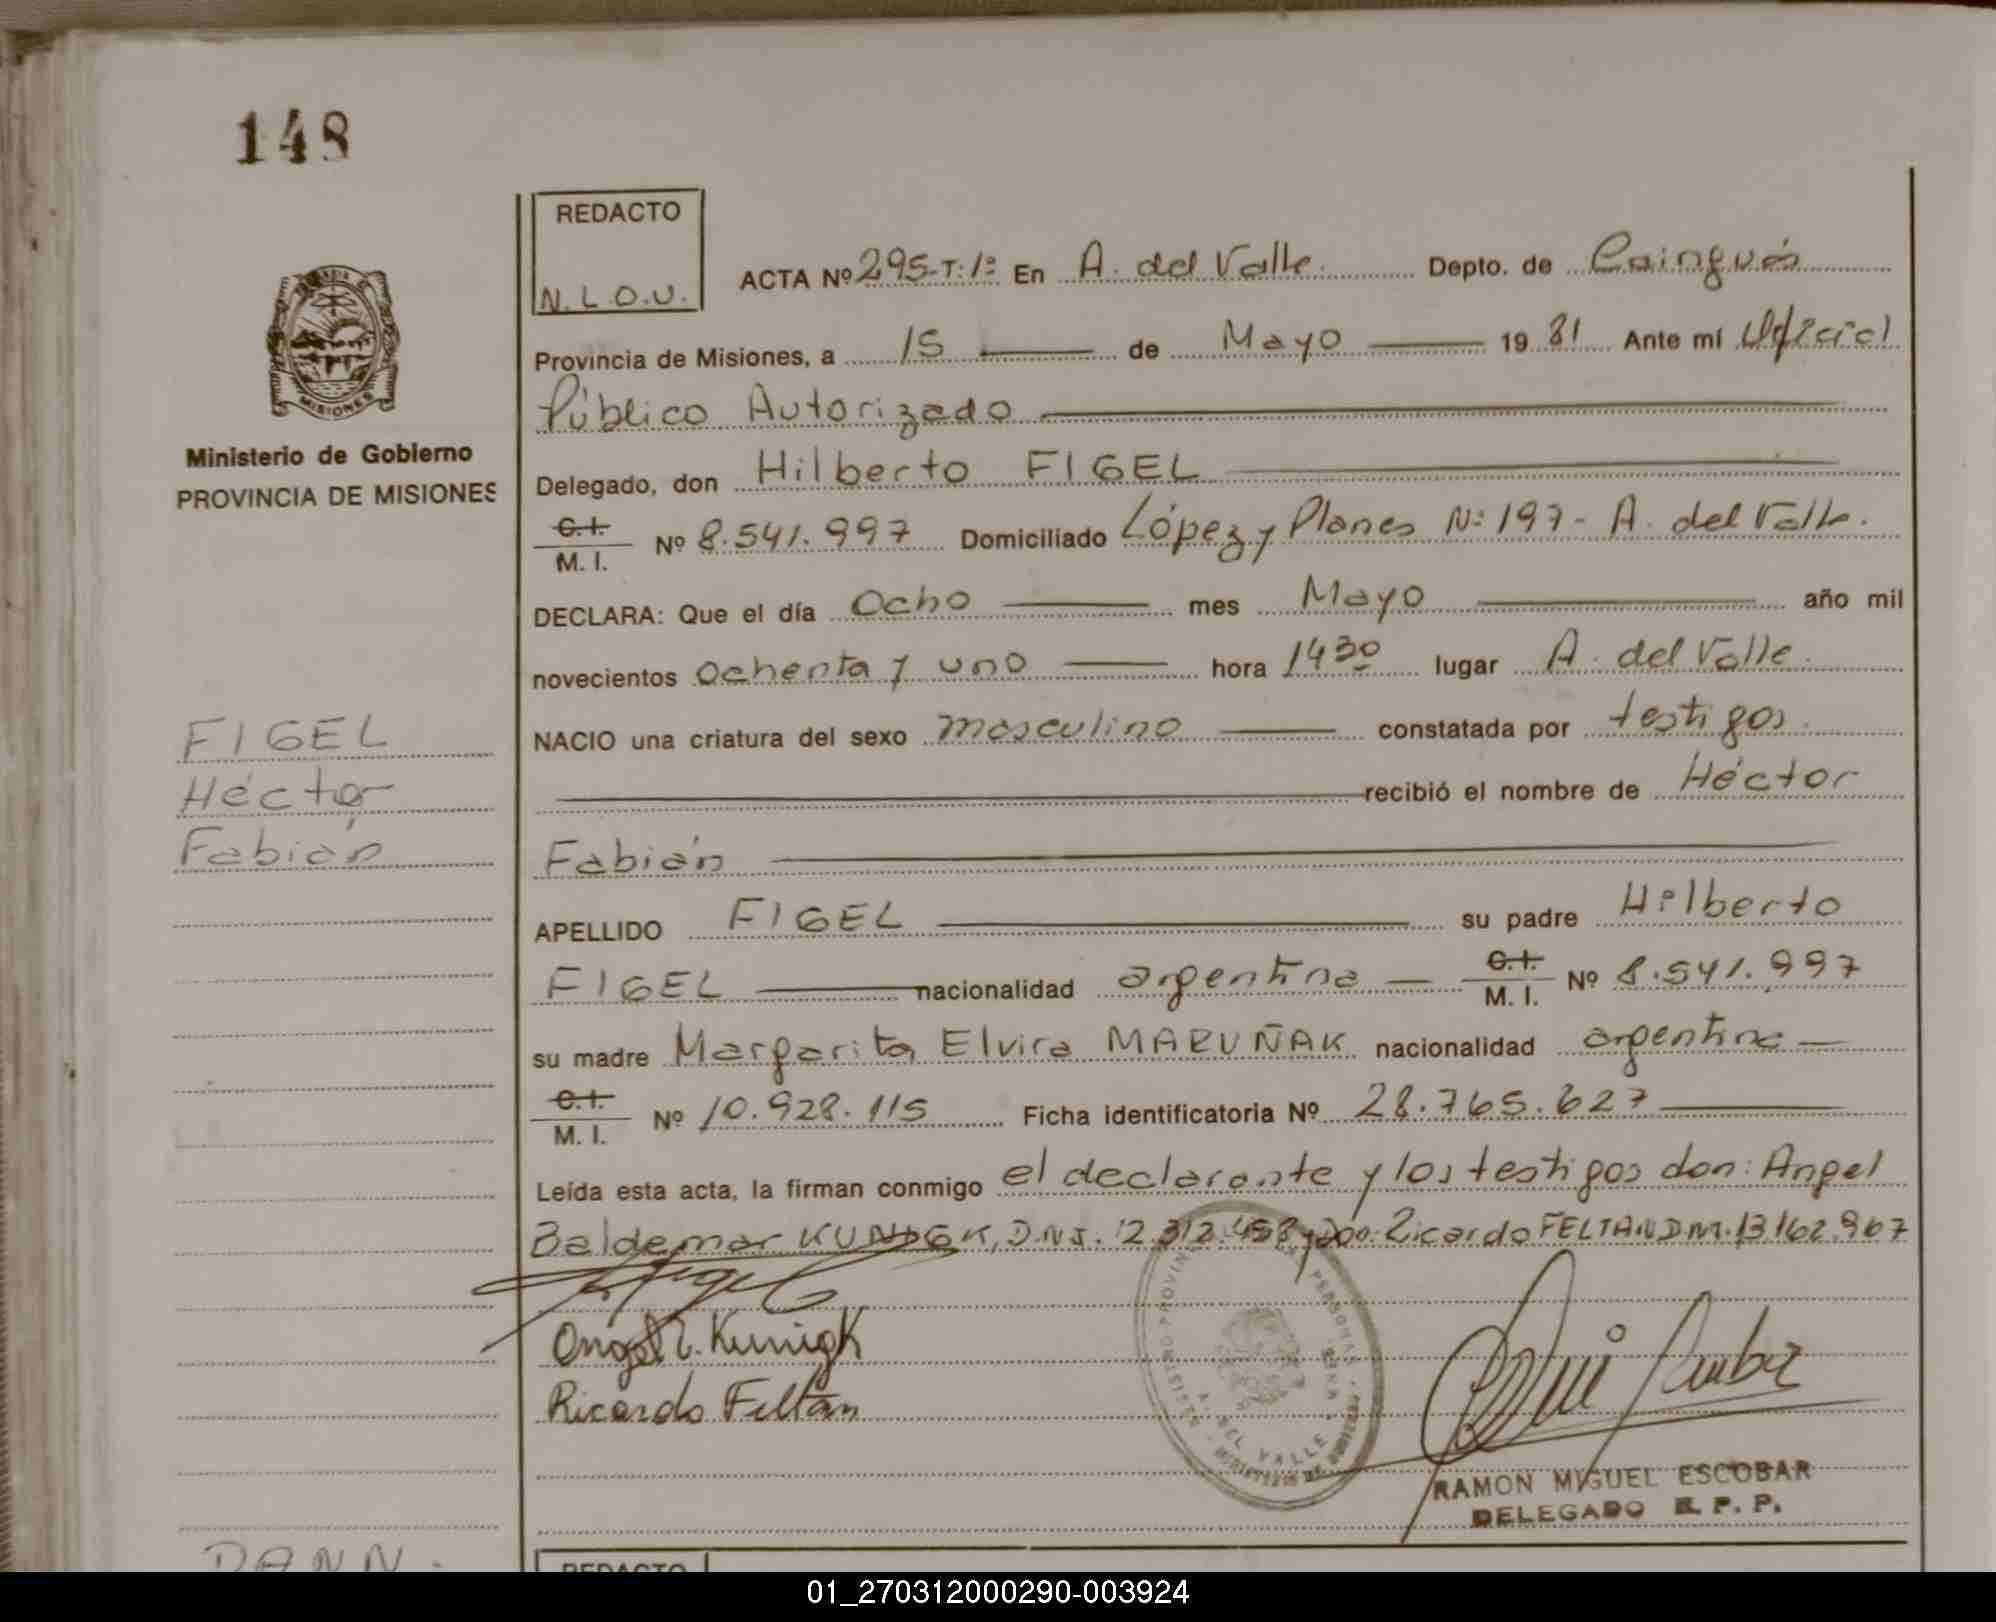 148
REDACTO
N. L O.U.
ACTA Nº 295-T:1º En A. del Valle Depto. de Cainguás
Provincia de Misiones, a 15 de Mayo 1981 Ante mí Oficial
Público Autorizado
MISIONES
Ministerio de Gobierno
PROVINCIA DE MISIONES
Delegado, don Hilberto FIGEL
C.I.
M. I. Nº 8.541.997 Domiciliado López y Planes Nº 197 - A. del Valle.
DECLARA: Que el día Ocho mes Mayo año mil
novecientos Ochenta y uno hora 1430 lugar A. del Valle.
FIGEL
Héctor
Fabián
NACIO una criatura del sexo masculino constatada por testigos.
recibió el nombre de Héctor
Fabián
APELLIDO FIGEL su padre Hilberto
FIGEL nacionalidad argentina C.I. M. I. Nº 8.541.997
su madre Margarita Elvira MARUÑAK nacionalidad argentina
C.I.
M. I. Nº 10.928.115 Ficha identificatoria Nº 28.765.627
Leída esta acta, la firman conmigo el declarante y los testigos don: Angel
Baldemar KUNIGK, D.N.I. 12.312.458 y don: Ricardo FELTAN D.NI. 13.162.967
Angel B. Kunigk
Ricardo Feltan
A. DEL VALLE
RAMON MIGUEL ESCOBAR
DELEGADO R. P. P.
DANN.
REDACTO
01_270312000290-003924